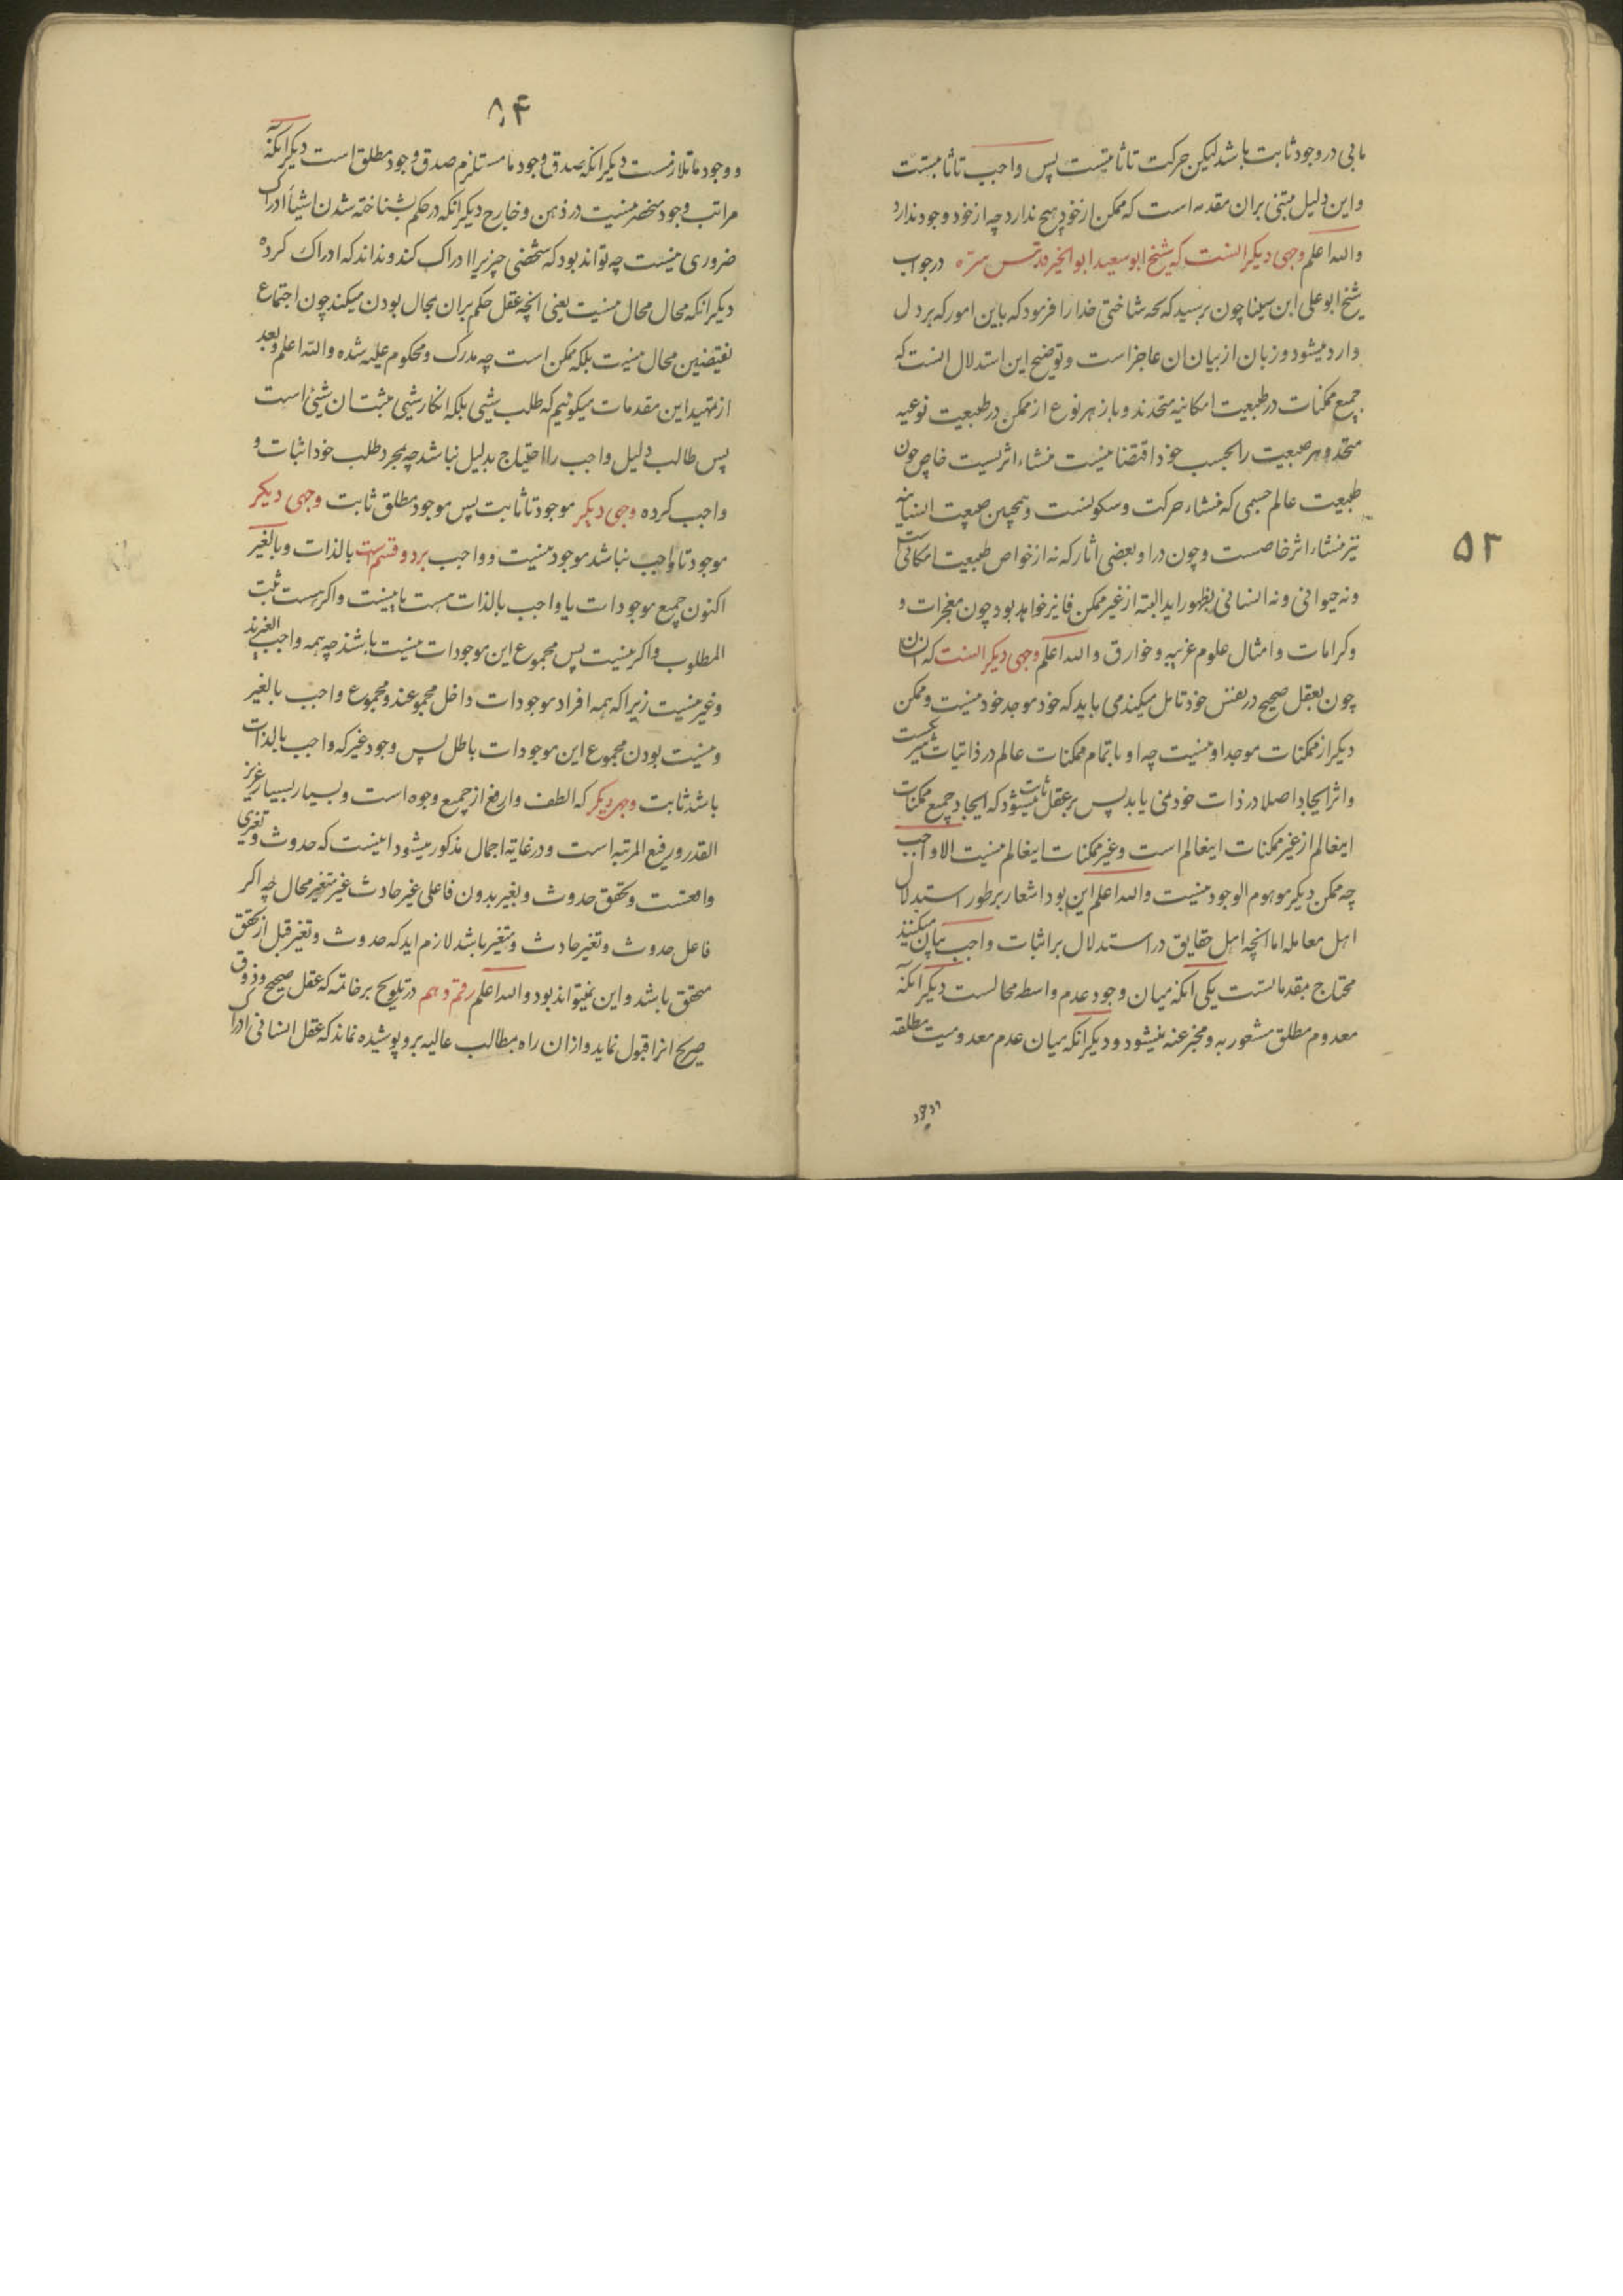 مابی در وجود ثابت باشد لیکن حرکت تا ثابتست پس واجب تا ثابتست
واین دلیل مبتنی بران مقدمه است که ممکن از خود هیچ ندارد چه از خود وجود ندارد
والله اعلم وجهی دیگر انست که شیخ ابو سعید ابو الخیر قدس سره در جواب
شیخ ابو علی ابن سینا چون پرسید که بچه شناختی خدا را فرمود که باین امور که بر دل
وارد میشود و زبان از بیان ان عاجز است و توضیح این استدلال انست که
جمیع ممکنات در طبیعت امکانیه متحدند و باز هر نوع از ممکن در طبیعت نوعیه
متحد و هر طبیعت را بحسب خود اقتضا نیست منشاء اثریست خاص چون
طبیعت عالم جسمی که منشاء حرکت و سکونست و همچنین طبیعت انسانیه
نیز منشاء اثر خاصست و چون در او بعضی اثار که نه از خواص طبیعت امکانی است
۵۲
ونه حیوانی ونه انسانی بظهور اید البته از غیر ممکن فایز خواهد بود چون معجزات و
وکرامات و امثال علوم غریبه و خوارق والله اعلم وجهی دیگر انست که انسان
چون بعقل صحیح در نفس خود تامل میکند می یابد که خود موجد خود نیست و ممکن
دیگر از ممکنات موجد او نیست چه او با تمام ممکنات عالم در ذاتیات
واثر ایجاد اصلا در ذات خود نمی یابد پس بر عقل ثابت میشود که ایجاد جمیع ممکنات
اینعالم از غیر ممکنات اینعالم است و غیر ممکنات اینعالم نیست الا واجب
چه ممکن دیگر موهوم الوجود نیست والله اعلم این بود اشعار بر طور استدلال
اهل معامله اما انچه اهل حقایق در استدلال بر اثبات واجب بیان میکنند
محتاج بمقدماتست یکی انکه میان وجود عدم واسطه محالست دیگر انکه
معدوم مطلق مشعور به و مخبر عنه نمیشود و دیگر انکه میان عدم معدومیت مطلقه
ووجود
۸۴
و وجود ما تلازمست دیگر انکه صدق وجود ما مستلزم صدق وجود مطلق است دیگر انکه
مراتب وجود منحصر نیست در ذهن و خارج دیگر انکه در حکم بشناخته شدن اشیأ ادراک
ضروری نیست چه تواند بود که شخصی چیزیرا ادراک کند و نداند که ادراک کرده
دیگر انکه محال محال نیست یعنی انچه عقل حکم بران بحال بودن میکند چون اجتماع
نقیضین محال نیست بلکه ممکن است چه مدرک و محکوم علیه شده والله اعلم و بعد
از تمهید این مقدمات میگوئیم که طلب شیی بلکه انکار شیی مثبت ان شیئ است
پس طالب دلیل واجب را احتیاج بدلیل نباشد چه بمجرد طلب خود اثبات و
واجب کرده وجهی دیگر موجود تا ثابت پس موجود مطلق ثابت وجهی دیگر
موجود تا واجب نباشد موجود نیست و واجب بر دو قسم است بالذات و بالغیر
اکنون جمیع موجودات یا واجب بالذات هست یا نیست واگر هست ثبت
المطلوب واگر نیست پس مجموع این موجودات نیست باشد چه همه واجب الغیرند
وغیر نیست زیرا که همه افراد موجودات داخل مجموعند و مجموع واجب بالغیر
ونیست بودن مجموع این موجودات باطل پس وجود غیر که واجب بالذات
باشد ثابت وجهی دیگر که الطف و ارفع از جمیع وجوه است و بسیار بسیار عزیز
القدر و رفیع المرتبه است و در غایة اجمال مذکور میشود اینست که حدوث و تغیری
واقعست و تحقق حدوث و بغیر بدون فاعلی غیر حادث غیر متغیر محال چه اگر
فاعل حدوث و تغیر حادث و متغیر باشد لازم اید که حدوث و تغیر قبل از تحقق
متحقق باشد و این نمیتواند بود والله اعلم رقم دهم در تلویح بر خاتمه که عقل صحیح و ذوق
صریح انرا قبول نماید و ازان راه بمطالب عالیه برد پوشیده نماند که عقل انسانی ادراک